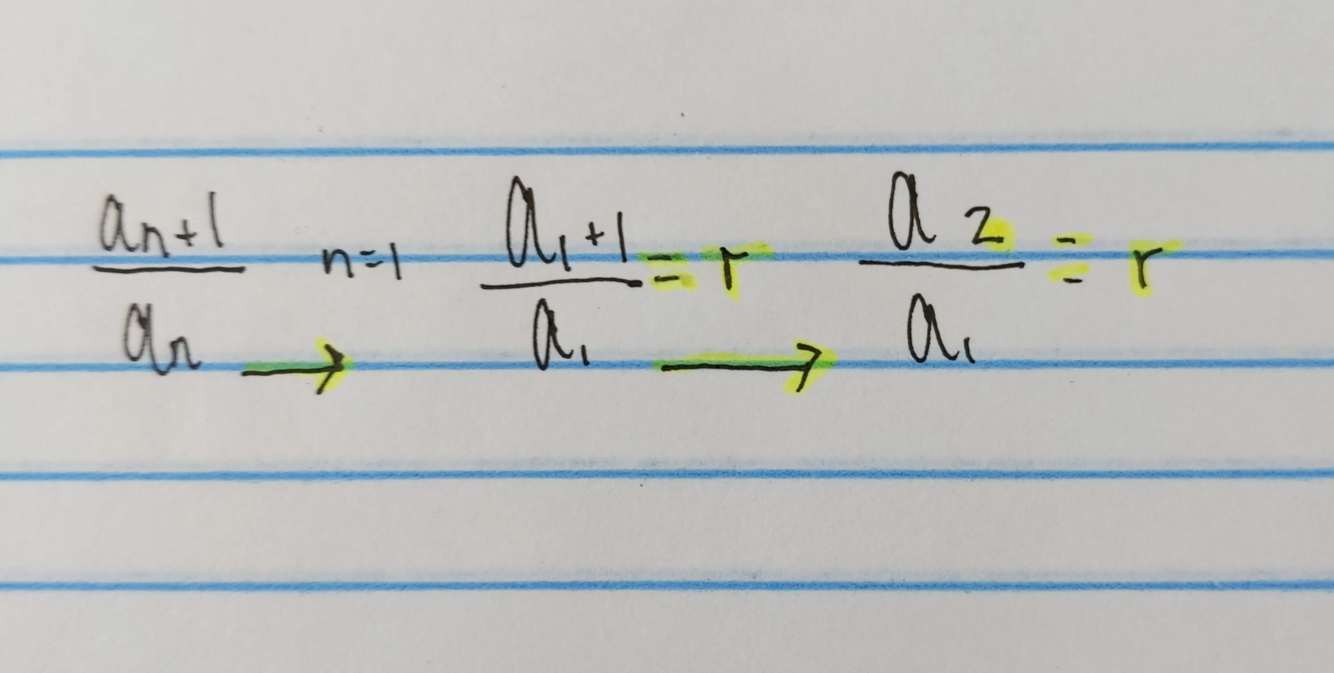 aₙ₊₁/aₙ → n=1 a₁₊₁/a₁ = r → a₂/a₁ = r